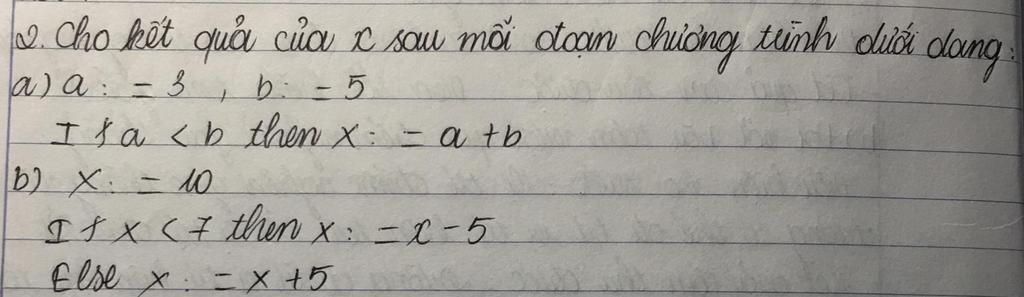 2. Cho kết quả của x sau mỗi đoạn chương trình dưới dang:
a) a := 3, b := 5
If a < b then x := a + b
b) x := 10
If x < 7 then x := x - 5
Else x := x + 5